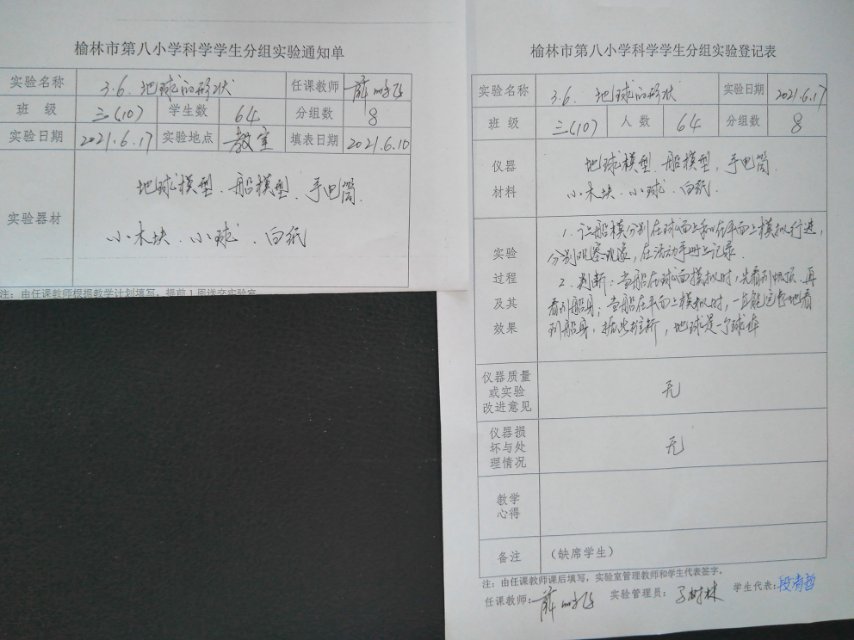 榆林市第八小学科学学生分组实验通知单
实验名称 3.6. 地球的形状 任课教师 薛
班 级 三(10) 学生数 64 分组数 8
实验日期 2021.6.17 实验地点 教室 填表日期 2021.6.10
实验器材
地球模型、船模型、手电筒、
小木块、小球、白纸
注：由任课教师根据教学计划填写，提前1周送交实验室
榆林市第八小学科学学生分组实验登记表
实验名称 3.6. 地球的形状 实验日期 2021.6.17
班 级 三(10) 人 数 64 分组数 8
仪器
材料
地球模型、船模型、手电筒、
小木块、小球、白纸、
实验
过程
及其
效果
1. 让船模分别在球面上和在平面上模拟行进，
分别观察现象，在活动手册上记录.
2. 判断：当船在球面模拟时，先看到帆顶，再
看到船身；当船在平面上模拟时，一直能完整地看
到船身，推断，地球是一个球体
仪器质量
或实验
改进意见
无
仪器损
坏与处
理情况
无
教学
心得
备注 （缺席学生）
注：由任课教师课后填写，实验室管理教师和学生代表签字。
任课教师：薛 实验管理员：树林 学生代表：段